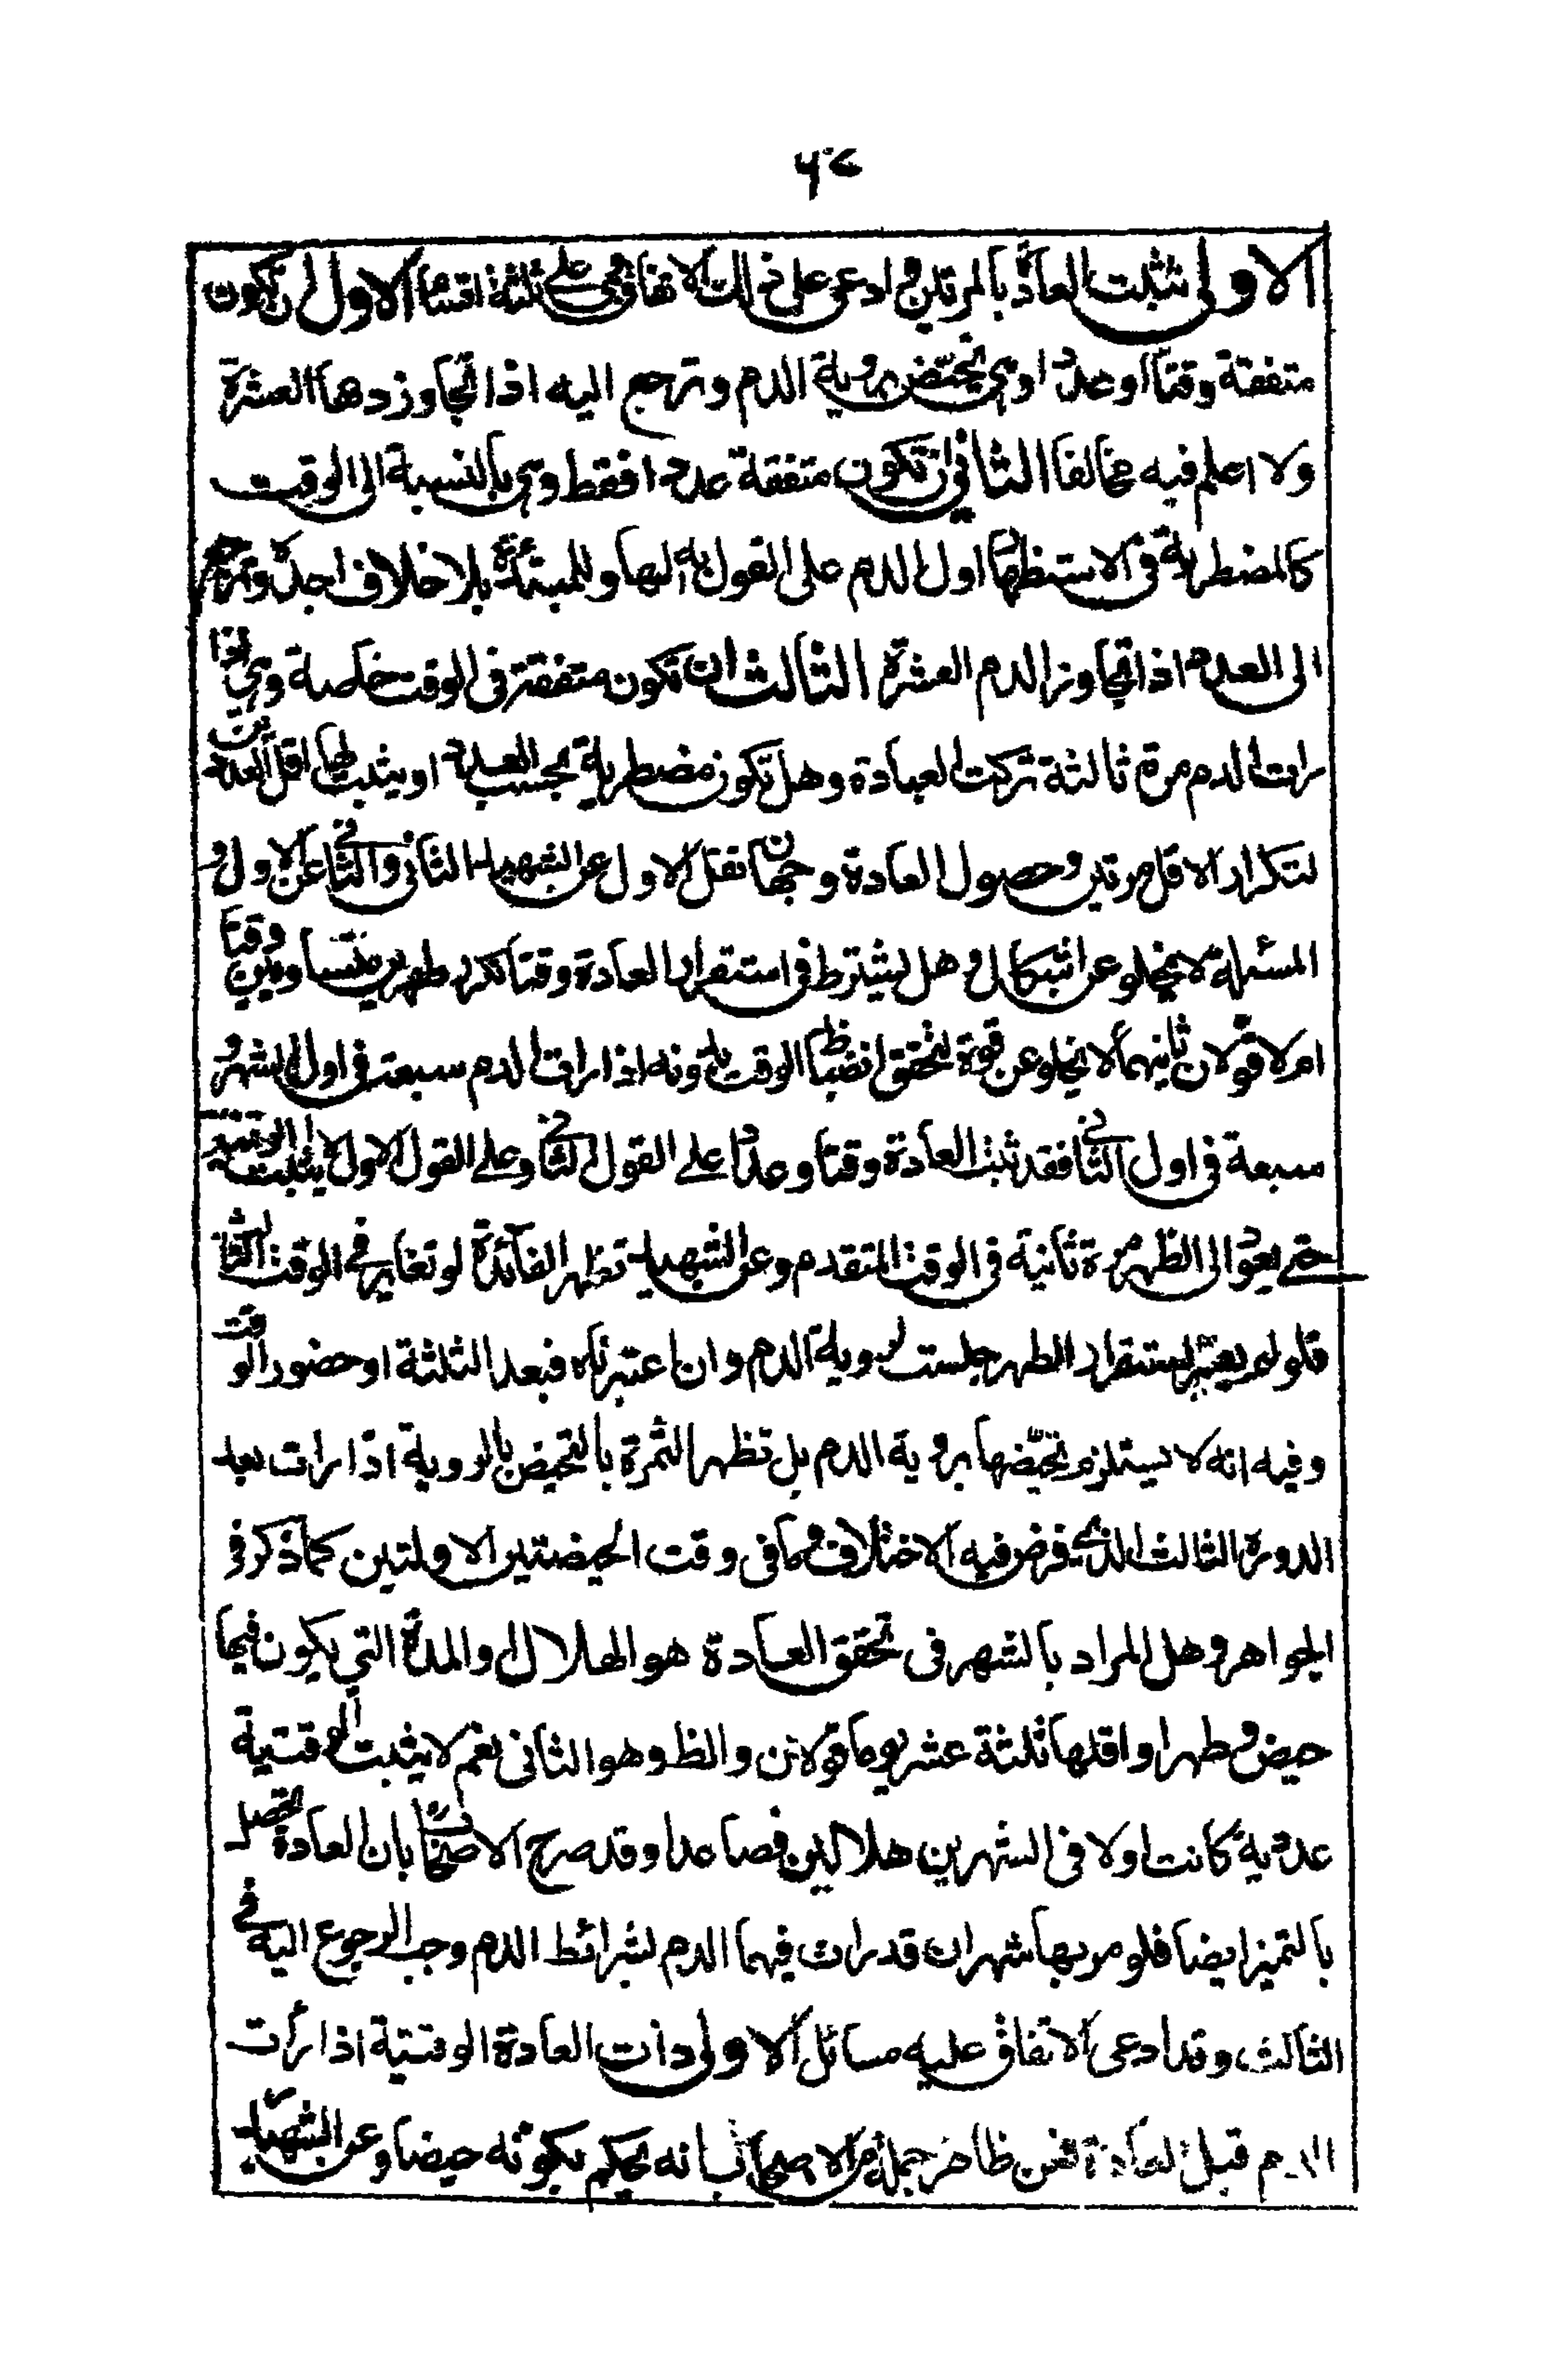 الاولى تثبت العادة بالمرتين وادعى على ذلك الاتفاق وهي على ثلثة اقسام الاول ان تكون
متفقة وقتا وعددا وهي تحيض بروية الدم وترجع اليه اذا تجاوز دمها العشرة
ولا اعلم فيه مخالفا الثاني ان تكون متفقة عددا فقط وهي بالنسبة الى الوقت
كالمضطربة في الاستظهار اول الدم على القول به لها وللمبتدئة بلا خلاف اجده وترجع
الى العدد اذا تجاوز الدم العشرة الثالث ان تكون متفقة في الوقت خاصة وهي اذا
رات الدم مرة ثالثة تركت العبادة وهل تكون مضطربة بحسب العدد او يثبت لها اقل العددين
لتكرار الاقل مرتين وحصول العادة وجهان نقل الاول عن الشهيد الثاني والثاني عن الاول و
المسئلة لا يخلو عن اشكال وهل يشترط في استقرار العادة وقتا تكرر طهرين متساويين وقتا
ام لا قولان ثانيهما لا يخلو عن قوة لتحقق انضباط الوقت بدونه اذا رات الدم سبعة في اول الشهر و
سبعة في اول الثاني فقد ثبت العادة وقتا وعددا على القول الثاني وعلى القول الاول لا يثبت الوقتية
حتى يعود الى الطهر مرة ثانية في الوقت المتقدم وعن الشهيد تظهر الفائدة لو تغاير في الوقت الثالث
فلو لم يعتبر استقرار الطهر جلست لروية الدم وان اعتبرناه فبعد الثلثة او حضور الوقت
وفيه انه لا يستلزم تحيضها بروية الدم بل تظهر الثمرة بالتحيض بالروية اذا رات بعد
الدورة الثالث الذي فرض فيه الاختلاف كما في وقت الحيضتين الاولتين كما ذكر في
الجواهر وهل المراد بالشهر في تحقق العادة هو الهلال او المدة التي يكون فيها
حيض وطهر واقلها ثلثة عشر يوما قولان والظ وهو الثاني نعم لا يثبت الوقتية
عددية كانت او لا في الشهرين هلالين فصاعدا وقد صرح الاصحاب بان العادة تحصل
بالتميز ايضا فلو مر بها شهران قد رات فيهما الدم بشرائط الدم وجب الرجوع اليه في
الثالث وقد ادعى الاتفاق عليه مسائل الاولى ذات العادة الوقتية اذا رأت
الدم قبل العادة فعن ظاهر جملة من الاصحاب بانه يحكم بكونه حيضا وعن الشهيد